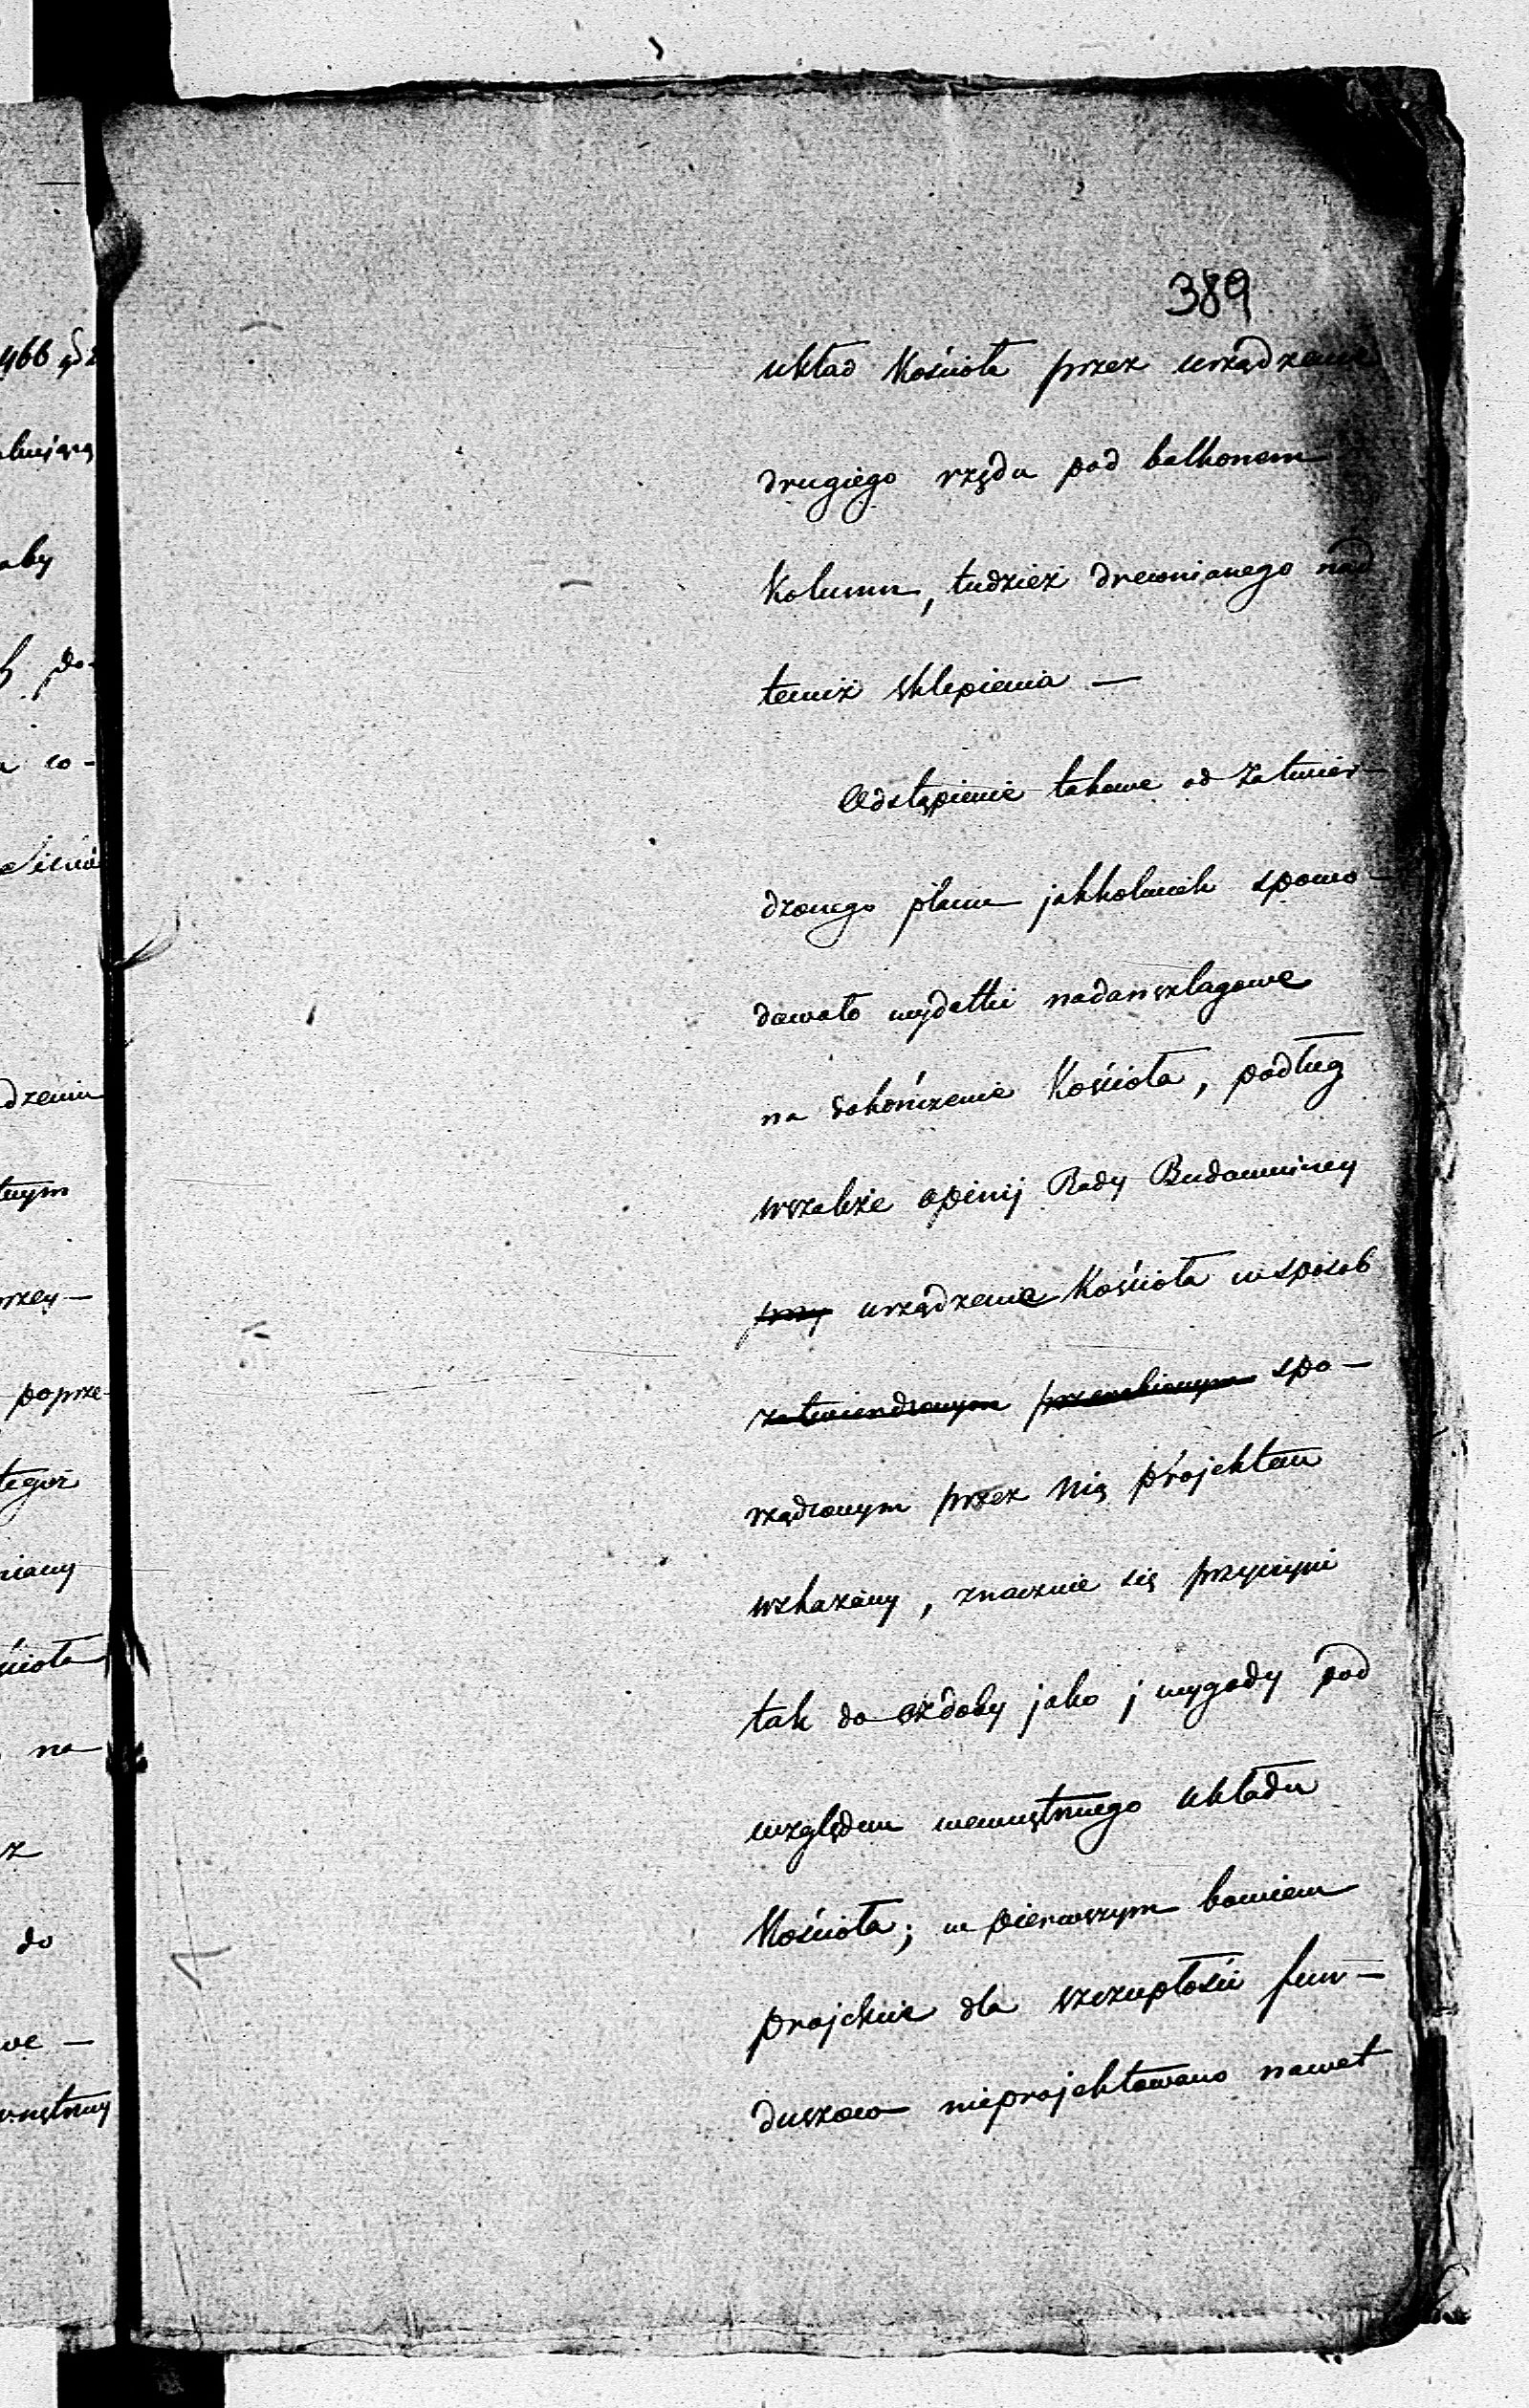 389
układ Kościoła przez urządzenie
drugiego rzędu pod balkonem
Kolumn, tudzież drewnianego nad
temiż sklepienia —
Odstąpienie takowe od Zatwier-
dzonego planu jakkolwiek spowo-
dowało wydatki nadanszlagowe
na dokończenie Kościoła, podług
wszakże opinij Rady Budowniczey
przy urządzenie Kościoła w sposób
zatwierdzonym przerobionym spo-
rządzonym przez Nią projektem
wskazany, znacznie się przyczyni
tak do ozdoby jako j wygody pod
względem wewnętrznego układu
Kościoła; w pierwszym bowiem
projekcie dla szczupłości fun-
duszow nieprojektowano nawet
466
aby
do-
co-
dzeniu
przey-
poprze-
tegoż
na
do